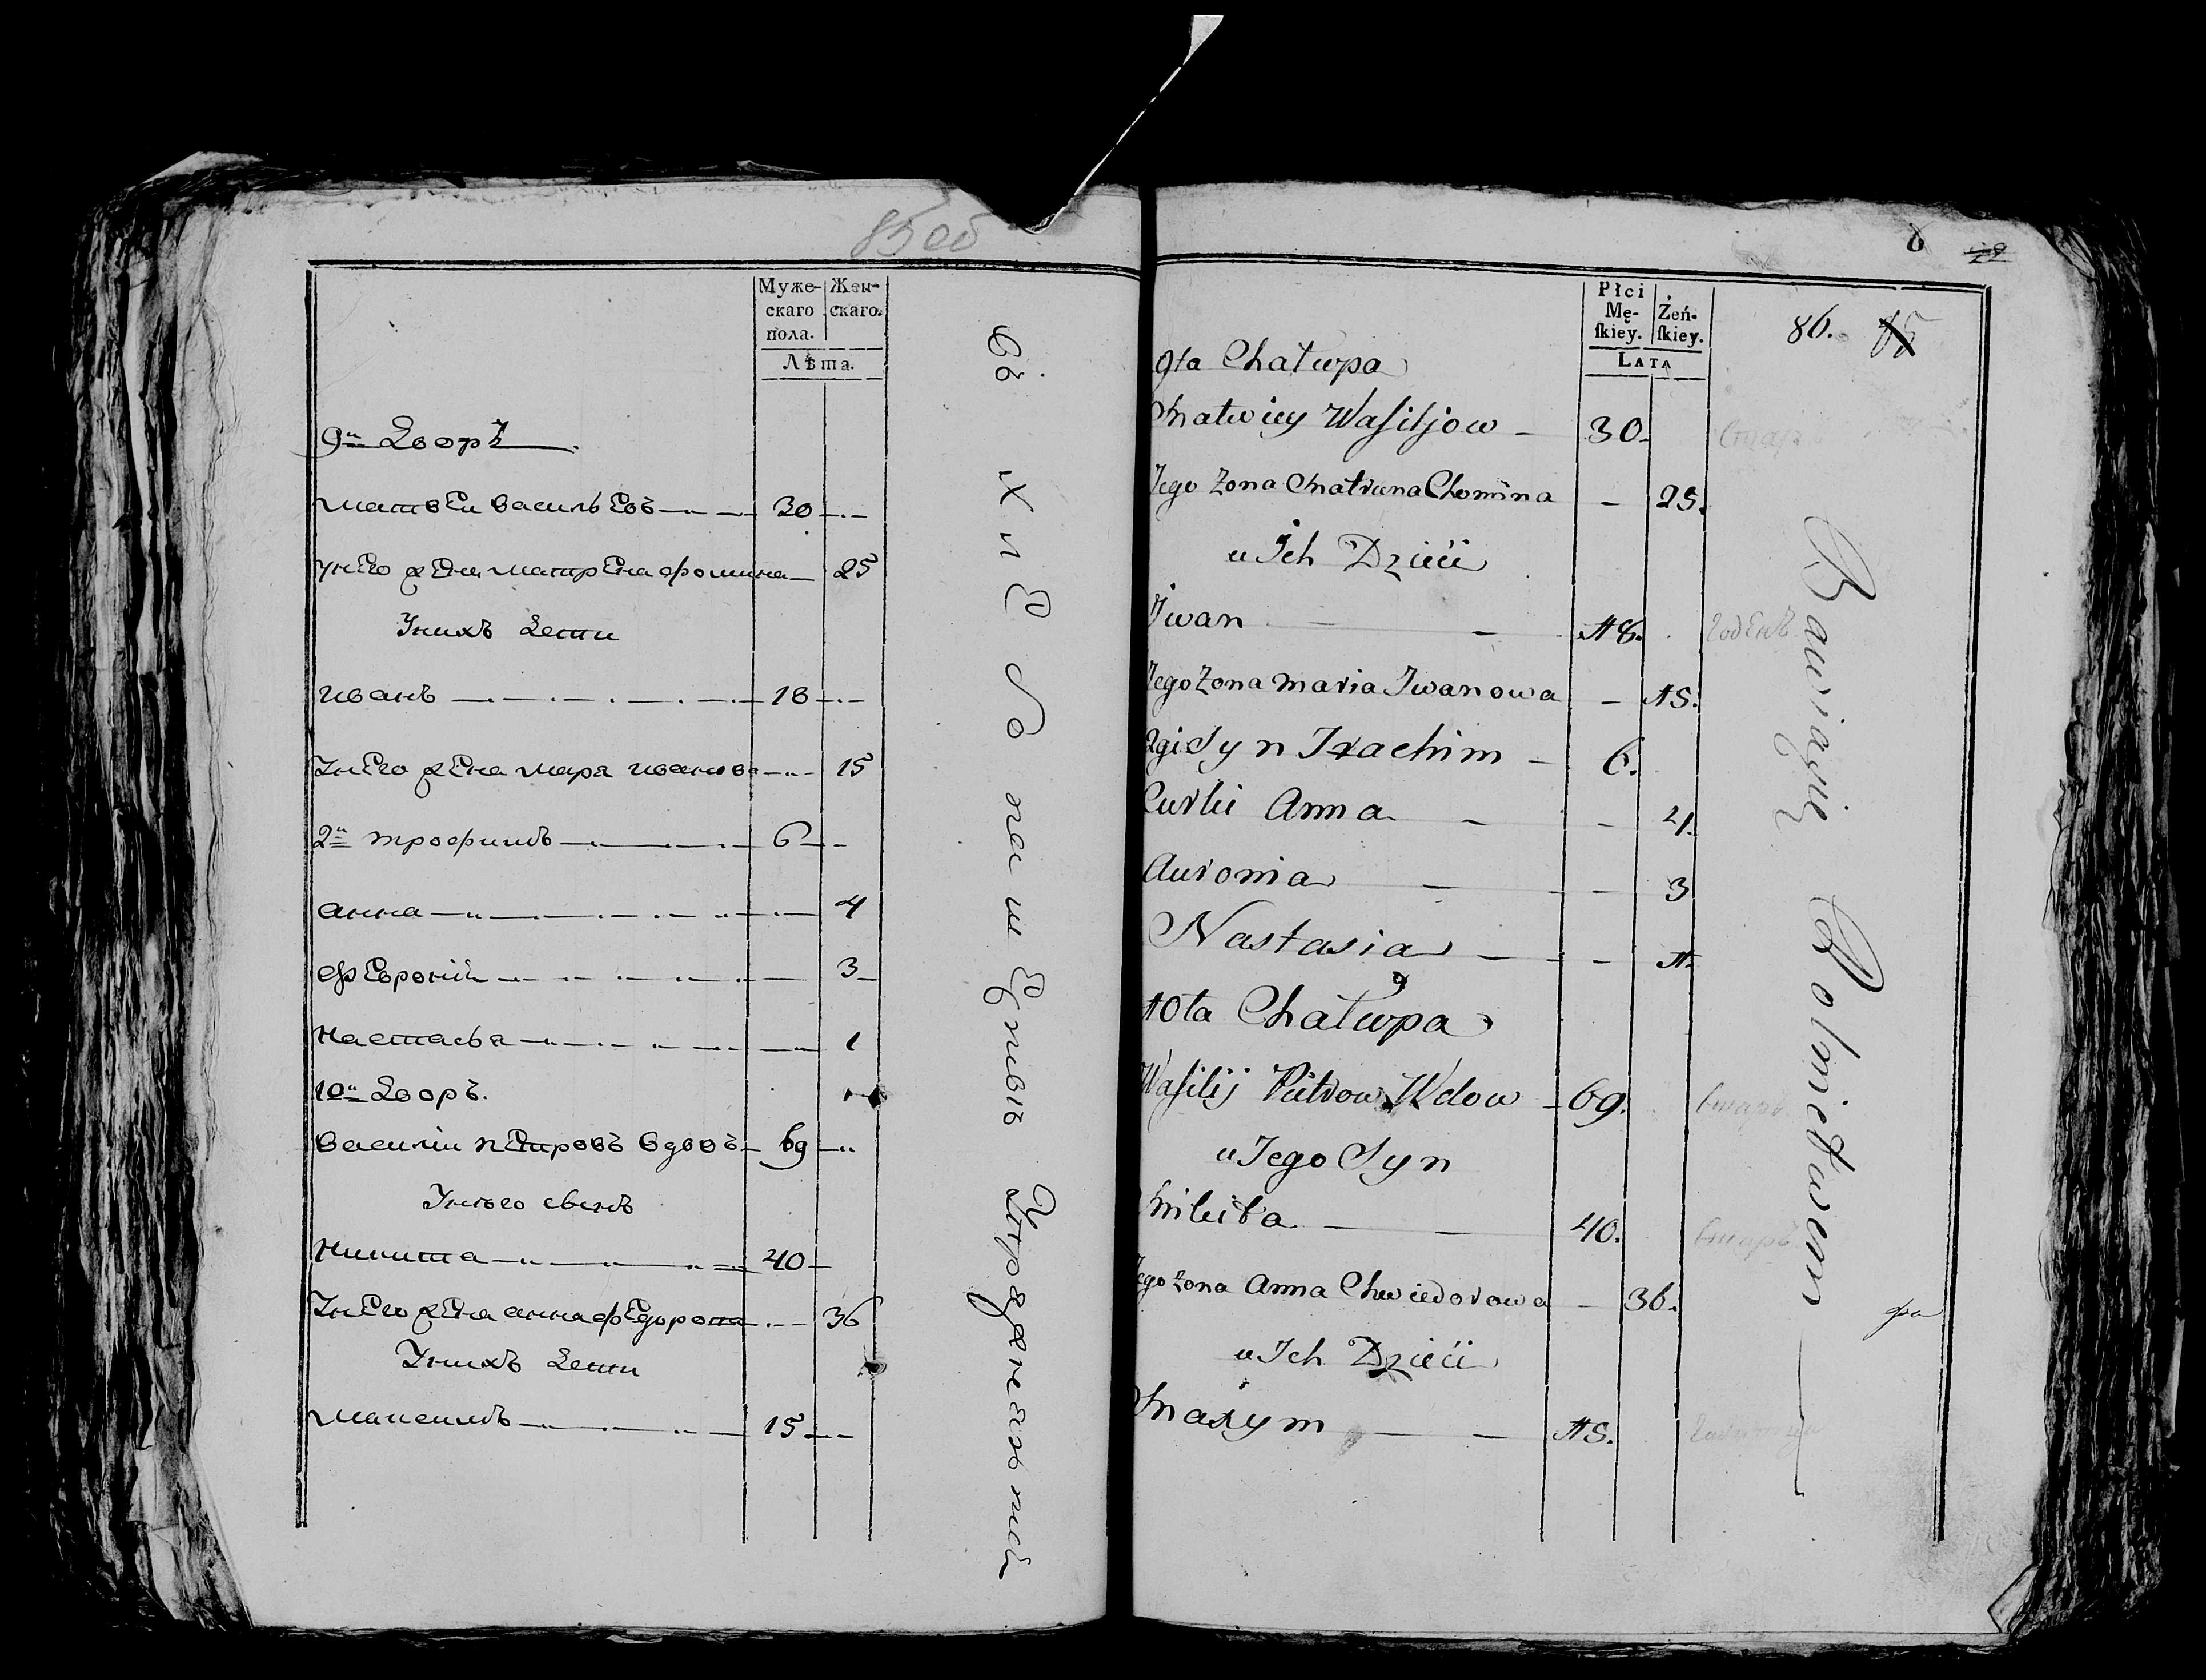 85 об
Муже-
скаго
пола.
Жен-
скаго.
Лѣта.
9й Дворъ
матвеи васильевъ 30
унего жена матрена фомина 25
Унихъ дети
иванъ 18
Унего жена маря иванова 15
2й трофимъ 6
анна 4
феврония 3
настасья 1
10й Дворъ.
василии петровъ вдовъ 69
Унего сынъ
никита 40
Унего жена анна федорова 36
Унихъ дети
максимъ 15
Съ ихъ
Płci
Mę-
skiey.
Żeń-
skiey.
LATA
86. 85
9ta Chałupa
Matwiey Wasiljow 30.
Jego Zona Matruna Chomina 25.
u Ich Dzieci
Iwan 18.
Jego Zona Maria Iwanowa 15.
2gi Syn Trachim 6.
Curki Anna 4.
Auronia 3
Nastasia 1.
10ta Chałupa
Wasilij Pietrow Wdow 69.
u Jego Syn
Mikita 40.
Jego Zona Anna Chwiedorowa 36.
u Ich Dzieci
Maxym 15.
годенъ
Bawiąnię Rolnictwem